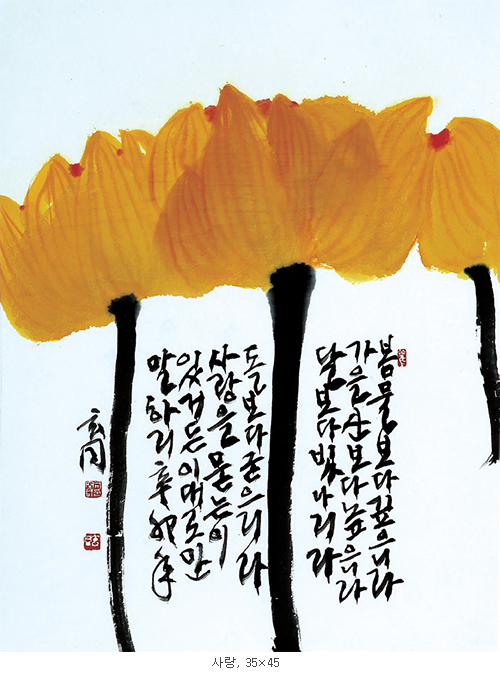 봄물보다깊으니라
가을山보다높으니라
달보다빛나리라
돌보다굳으리라
사랑을묻는이
있거든이대로만
말하리 辛卯年
玄同
사랑, 35×45